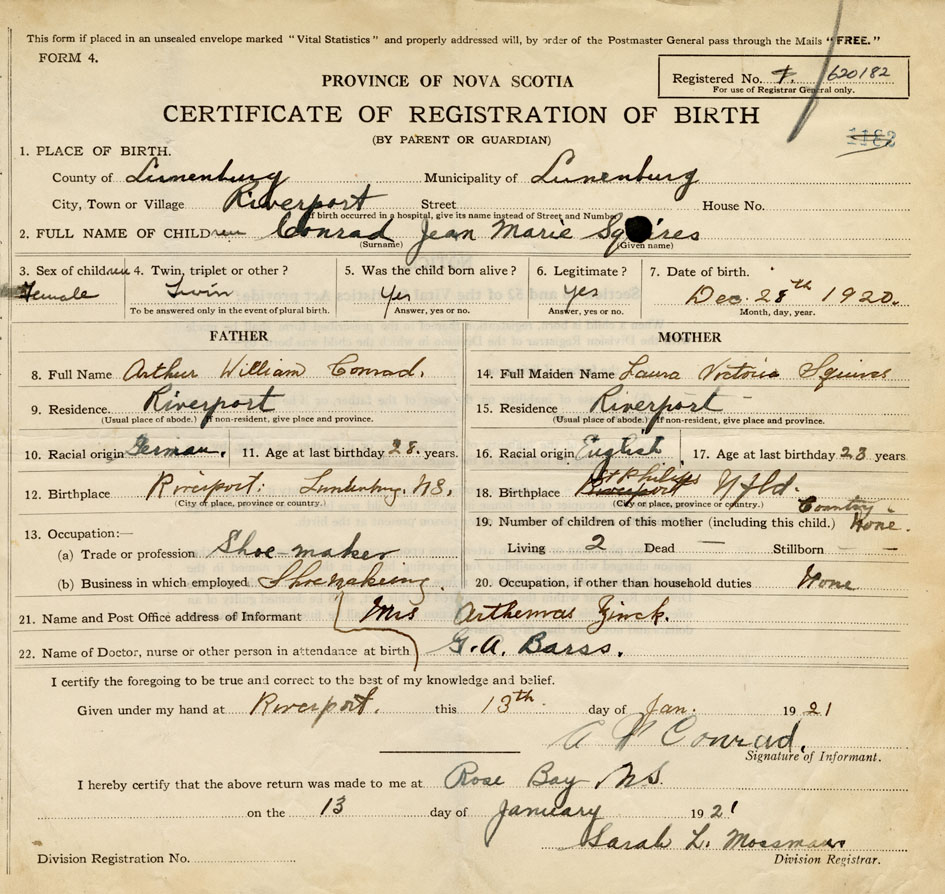 This form if placed in an unsealed envelope marked "Vital Statistics" and properly addressed will, by order of the Postmaster General pass through the Mails "FREE."
FORM 4.
PROVINCE OF NOVA SCOTIA
Registered No. 620182
For use of Registrar General only.
CERTIFICATE OF REGISTRATION OF BIRTH
(BY PARENT OR GUARDIAN)
1182
1. PLACE OF BIRTH.
County of Lunenburg Municipality of Lunenburg
City, Town or Village Riverport Street House No.
If birth occurred in a hospital, give its name instead of Street and Number
2. FULL NAME OF CHILDren Conrad Jean Marie Squires
(Surname) (Given name)
3. Sex of children 4. Twin, triplet or other? 5. Was the child born alive? 6. Legitimate? 7. Date of birth.
Female Twin Yes Yes Dec. 28th 1920.
To be answered only in the event of plural birth. Answer, yes or no. Answer, yes or no. Month, day, year.
FATHER MOTHER
8. Full Name Arthur William Conrad. 14. Full Maiden Name Laura Victoria Squires
9. Residence. Riverport 15. Residence Riverport
(Usual place of abode.) If non-resident, give place and province. (Usual place of abode.) If non-resident, give place and province.
10. Racial origin German. 11. Age at last birthday 28. years. 16. Racial origin English 17. Age at last birthday 23 years.
12. Birthplace Riverport: Lunenburg. N.S. 18. Birthplace Riverport St Philips Nfld.
(City or place, province or country.) (City or place, province or country.) Country
13. Occupation:— 19. Number of children of this mother (including this child.) None.
(a) Trade or profession Shoe-maker Living 2 Dead — Stillborn —
(b) Business in which employed Shoemakeing. 20. Occupation, if other than household duties None
21. Name and Post Office address of Informant Mrs Arthemas Zinck.
22. Name of Doctor, nurse or other person in attendance at birth G. A. Barss.
I certify the foregoing to be true and correct to the best of my knowledge and belief.
Given under my hand at Riverport. this 13th. day of Jan. 1921
A W Conrad.
Signature of Informant.
I hereby certify that the above return was made to me at Rose Bay N.S.
on the 13 day of January 1921
Sarah L. Mossman
Division Registrar.
Division Registration No.